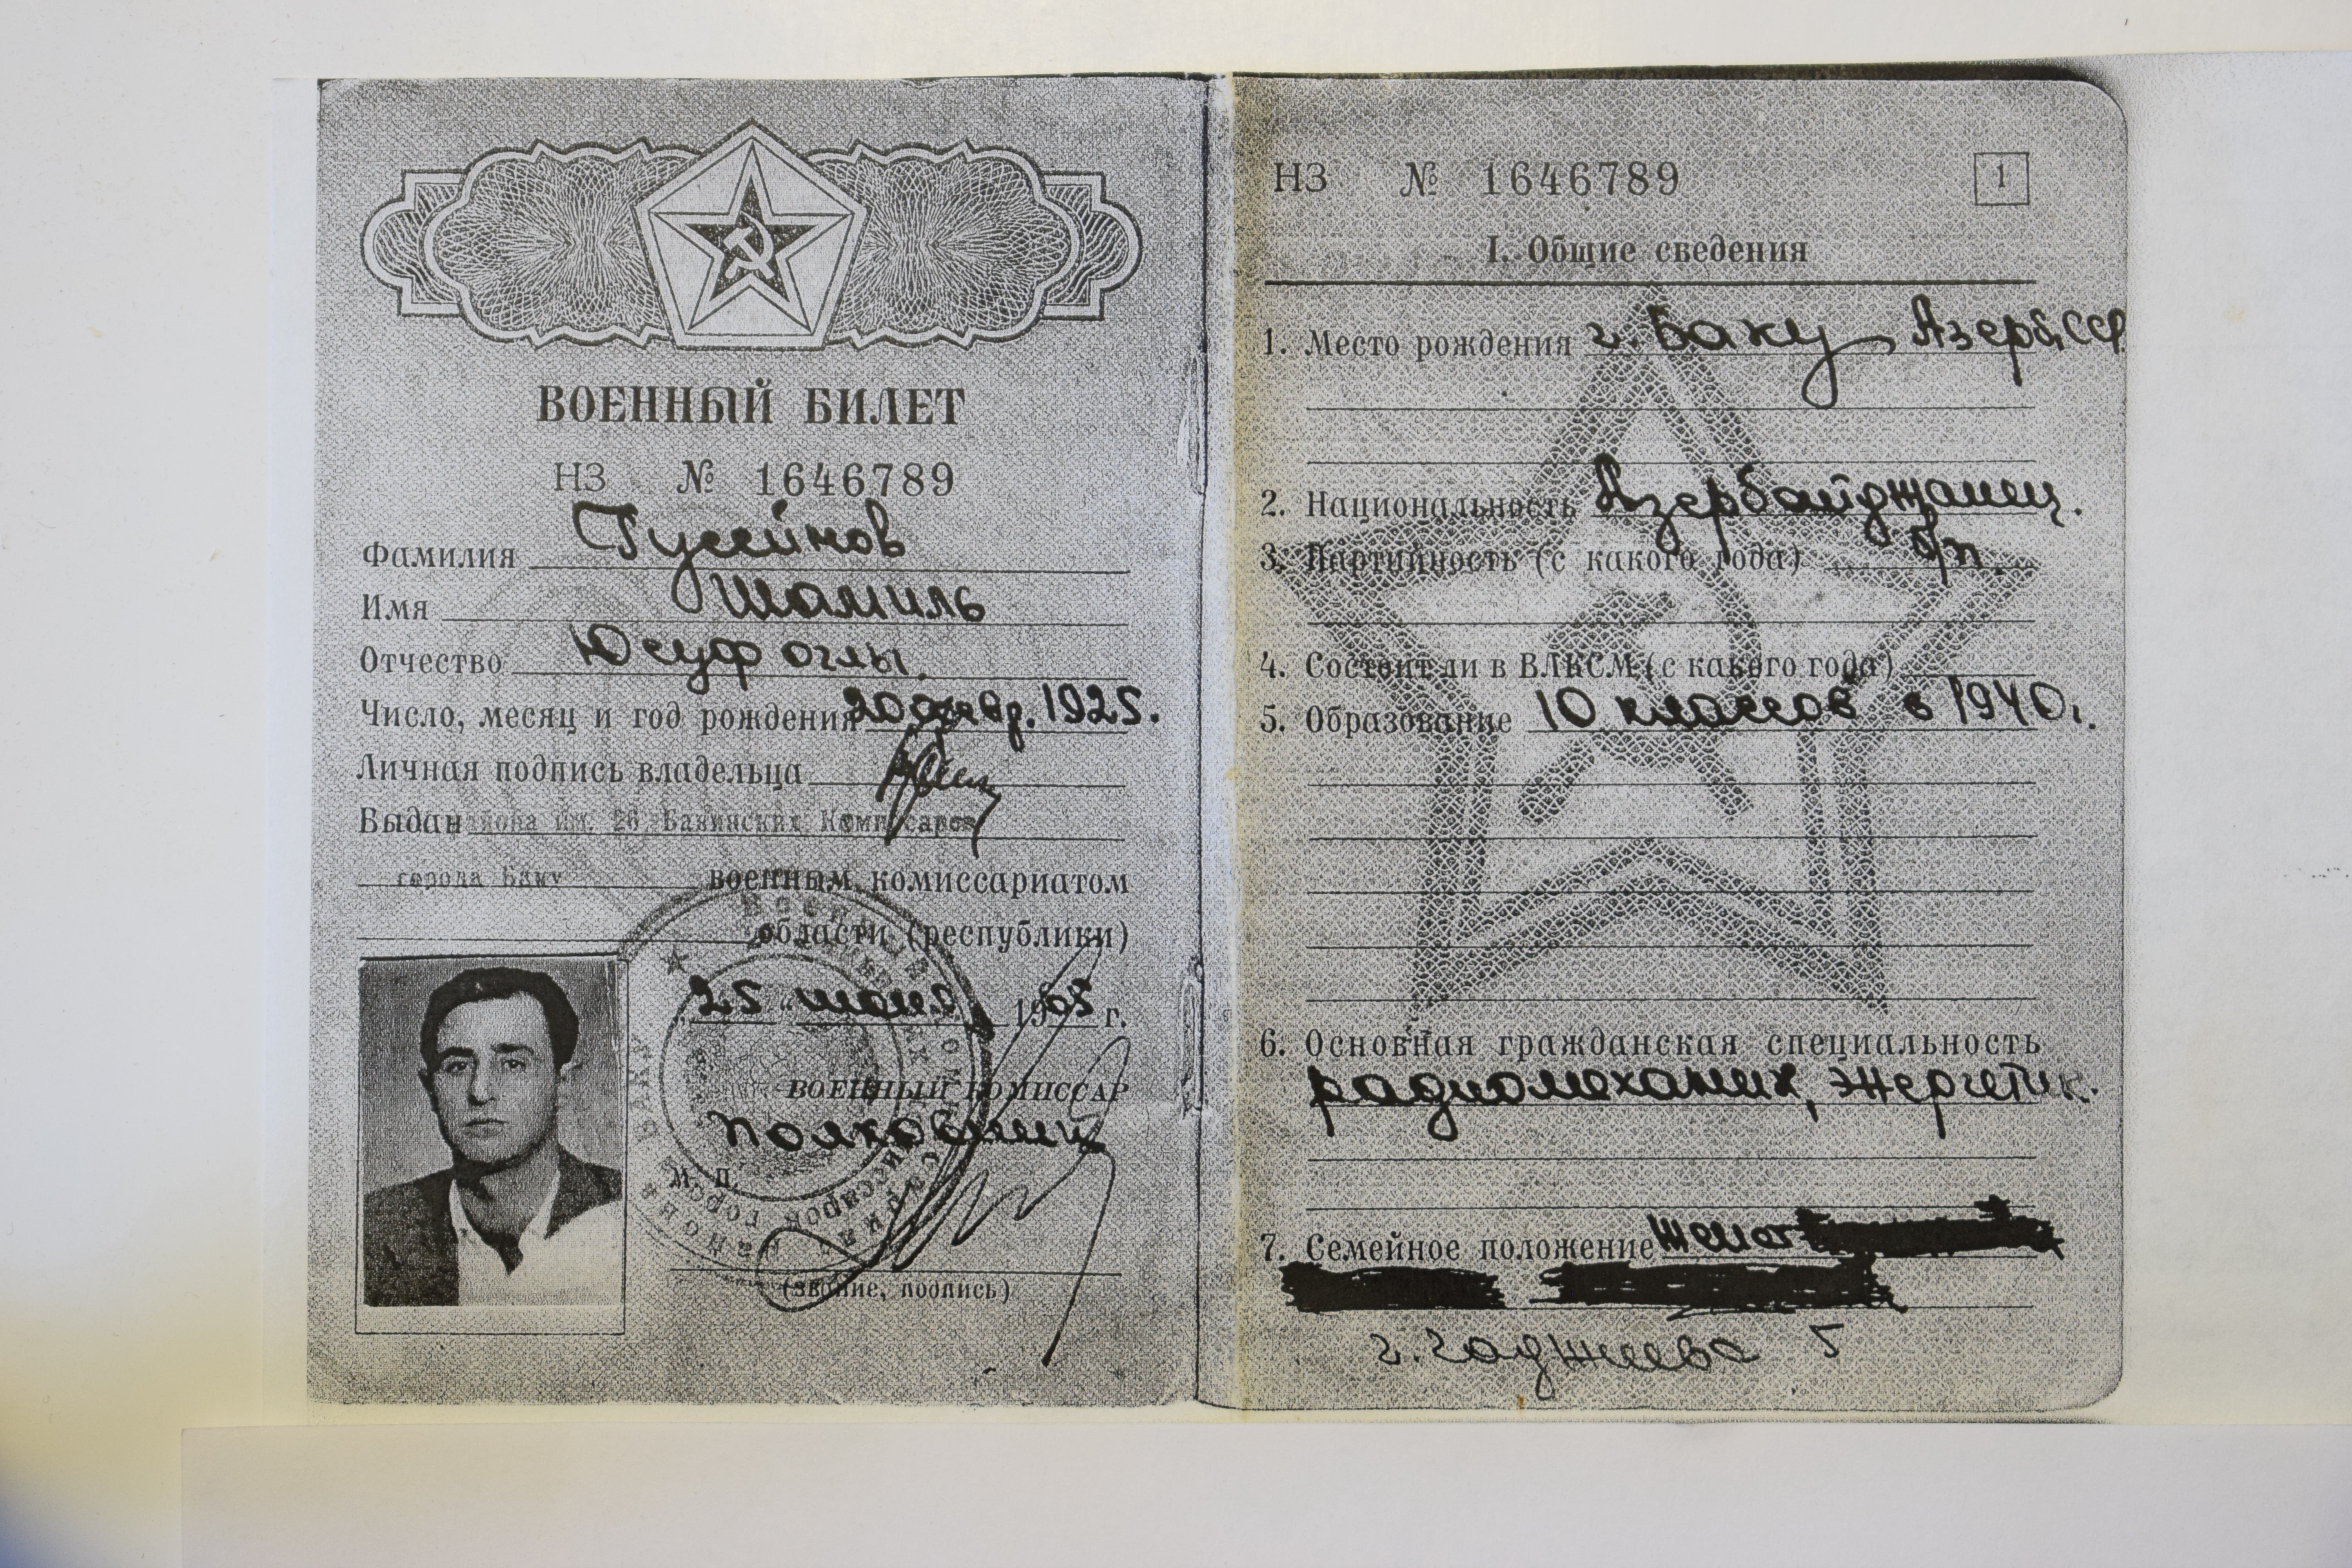 ВОЕННЫЙ БИЛЕТ
НЗ № 1646789
Фамилия Гусейнов
Имя Шамиль
Отчество Юсуф оглы.
Число, месяц и год рождения 20 1925.
Личная подпись владельца
Выдан района им. 26 Бакинских Комиссаров
города Баку военным комиссариатом
области (республики)
25 1965 г.
ВОЕННЫЙ КОМИССАР
полковник
М. П.
(звание, подпись)
НЗ № 1646789
1
I. Общие сведения
1. Место рождения г. Баку Азерб.ССР.
2. Национальность Азербайджанец.
3. Партийность (с какого года) б/п.
4. Состоит ли в ВЛКСМ (с какого года)
5. Образование 10 классов в 1940г.
6. Основная гражданская специальность
радиомеханик, энергетик.
7. Семейное положение Женат
г. Гаджиева 5